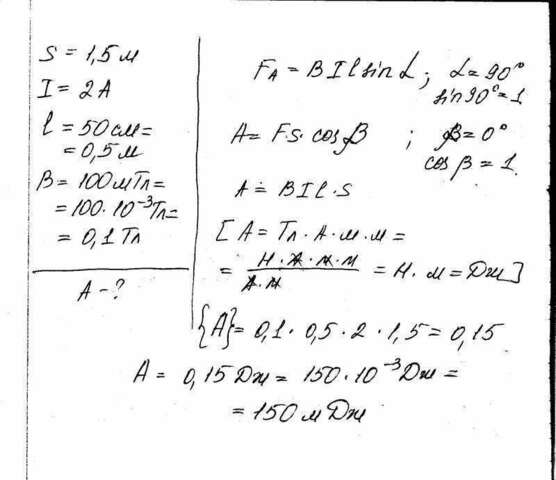 S = 1,5 м
I = 2 А
l = 50 см =
= 0,5 м
B = 100 мТл =
= 100 · 10⁻³ Тл =
= 0,1 Тл
А - ?
Fᴀ = B I l sin α ; α = 90°
sin 90° = 1
А = F · s · cos β ; β = 0°
cos β = 1.
А = B I l · S
[ А = Тл · А · м · м =
= Н · А · м · м / А · м = Н · м = Дж ]
{А} = 0,1 · 0,5 · 2 · 1,5 = 0,15
А = 0,15 Дж = 150 · 10⁻³ Дж =
= 150 м Дж